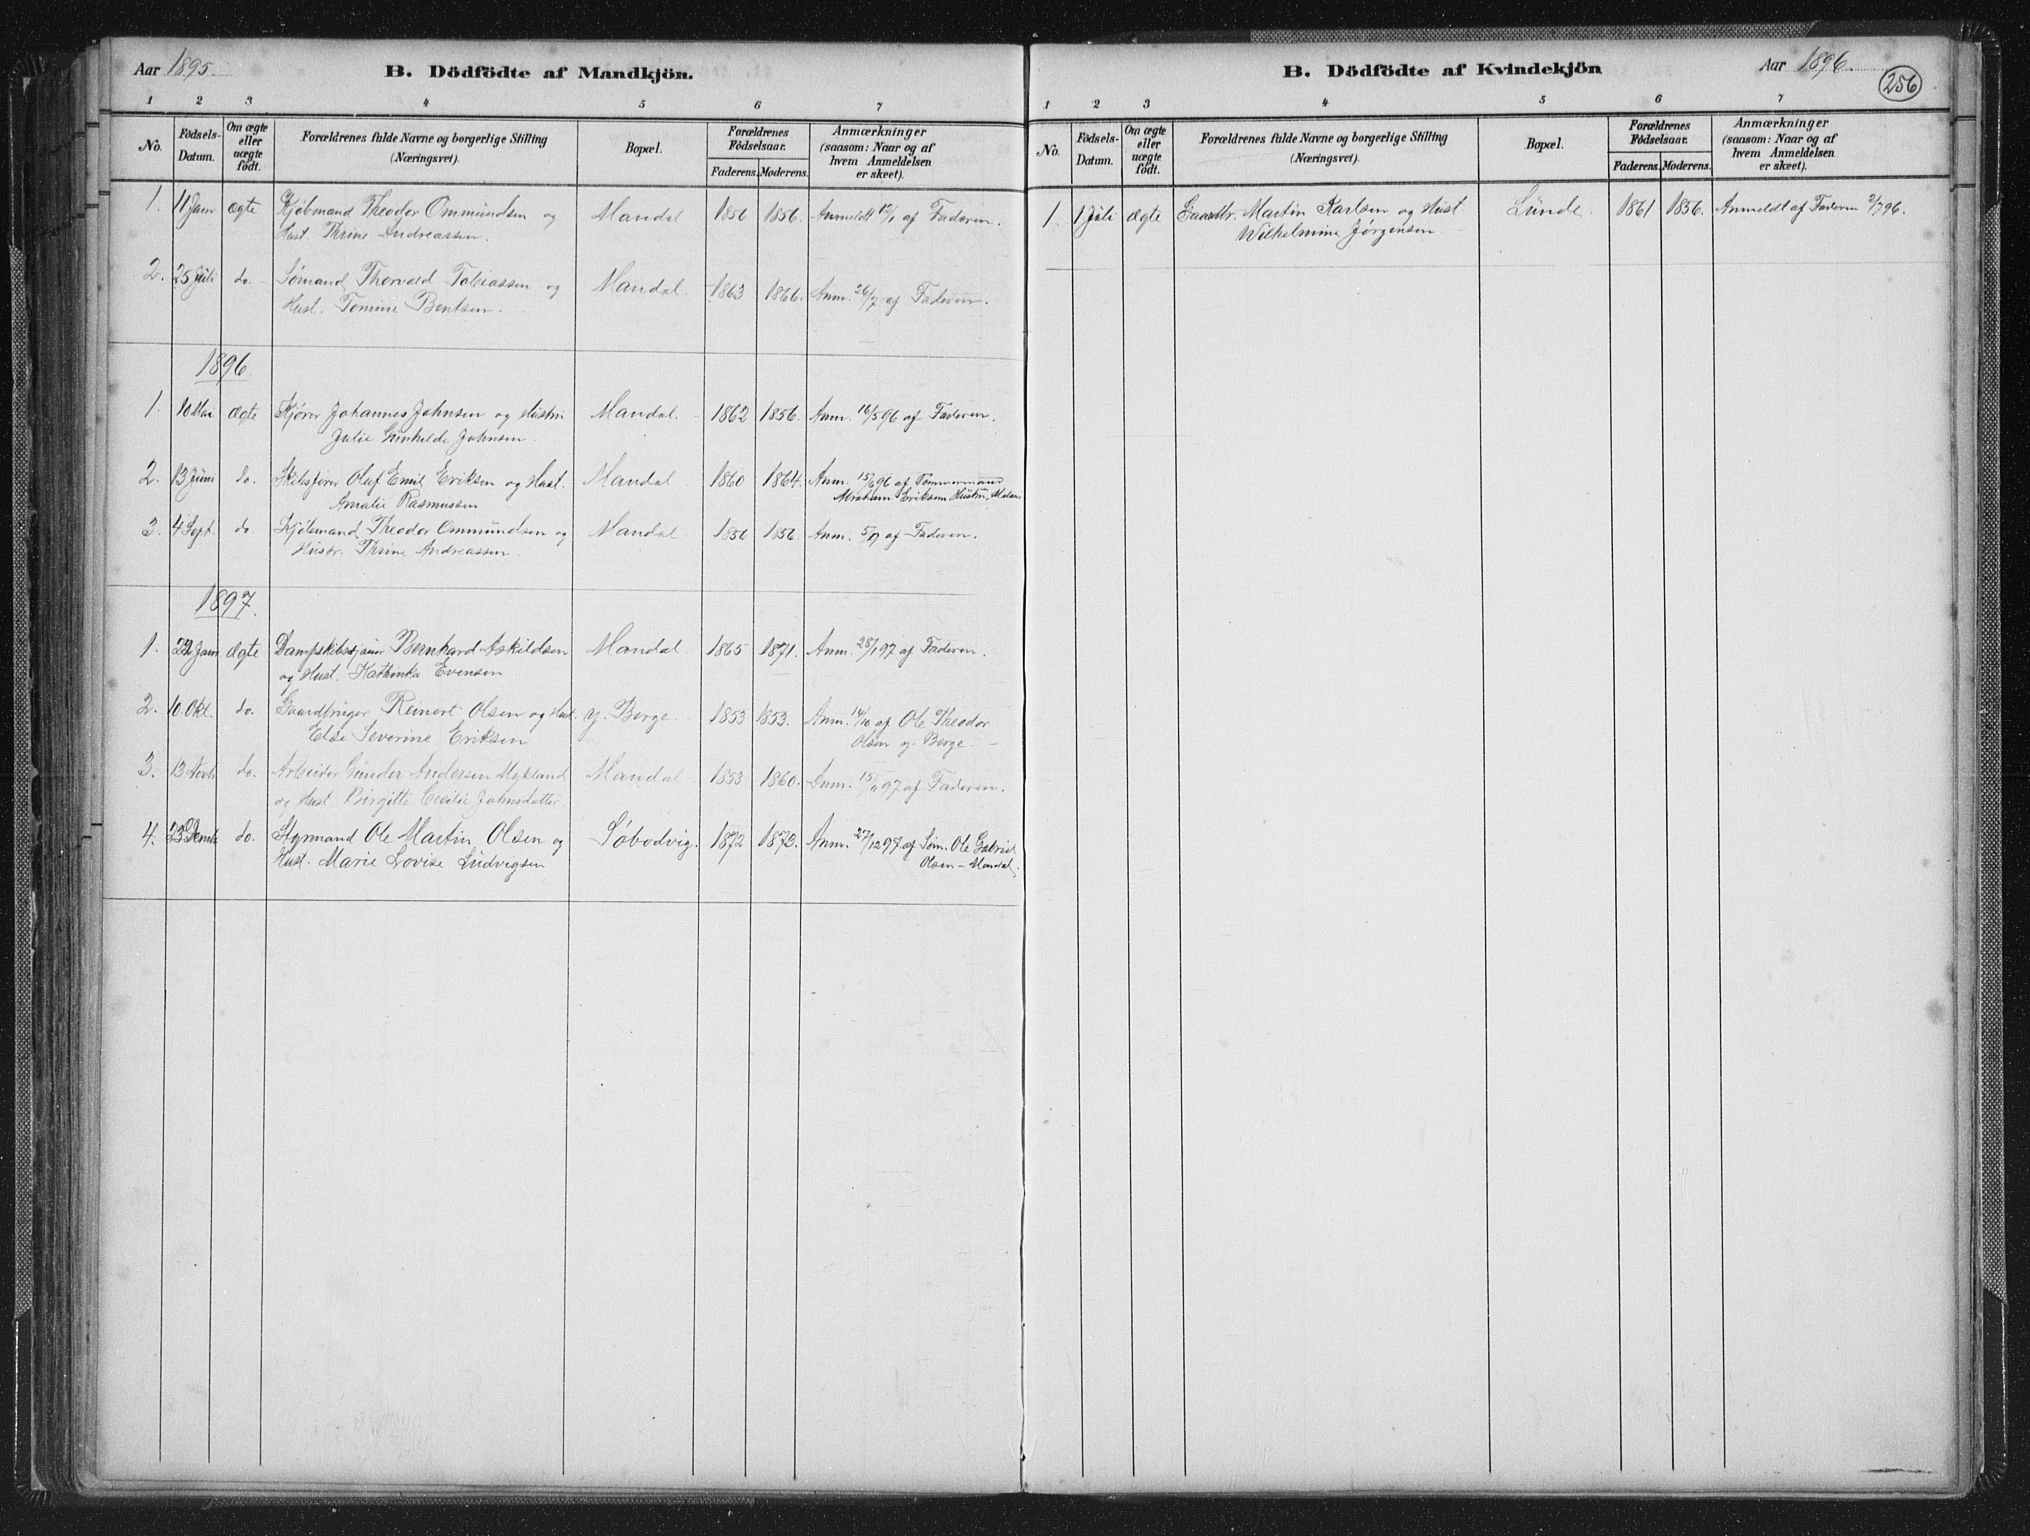 Aar 1895.
B. Dödfödte af Mandkjön.
1 2 3 4 5 6 7
No. Födsels-Datum. Om ægte eller uægte födt. Forældrenes fulde Navne og borgerlige Stilling (Næringsvei). Bopæl. Forældrenes Födselsaar. Faderens. Moderens. Anmærkninger (saasom: Naar og af hvem Anmeldelsen er skeet).
1. 11 Janr ægte Kjöbmand Theodor Ommundsen og Mandal 1856 1856. Anmeldt 12/1 af Faderen.
Hust. Thrine Andreassen.
2. 25 Juli do. Sømand Thorvald Tobiassen og Mandal. 1863 1866. Anm. 26/7 af Faderen.
Hust. Tomine Bentsen.
1896.
1. 10 Mai Ægte Kjører Johannes Johnsen og Hustru Mandal. 1862 1856. Anm. 16/5 96 af Faderen.
Julie Gunhilde Johnsen.
2. 13 Juni do. Skibsfører Oluf Emil Eriksen og Hust. Mandal. 1860 1864. Anm. 15/6 96 af Tømmermand
Amalie Rasmussen Abraham Eriksens Hustru,
3. 4 Sept. do. Kjöbmand Theodor Ommundsen og Mandal. 1856 1856. Anm. 5/9 af Faderen.
Hustr. Thrine Andreassen.
1897.
1. 22 Janr. Ægte Bernhard Askildsen Mandal. 1865 1871. Anm. 28/1 97 af Faderen.
og Hust. Kathinka Evensen
2. 10 Okt. do. Gaardbruger Reinert Olsen og Hust. y. Berge. 1853 1853. Anm. 14/10 af Ole Theodor
Else Severine Eriksen Olsen y. Berge.
3. 13 Novb. do. Arbeider Gunder Andersen Mykland Mandal 1853 1860. Anm. 15/11 97 af Faderen.
og Hust. Birgitte Cecilie Johnsdatter.
4. 23 Decmb. do. Styrmand Ole Martin Olsen og Søbodvig. 1872 1873. Anm. 27/12 97 af Søm. Ole Gabriel
Hust. Marie Lovise Ludvigsen Olsen – Mandal.
B. Dödfödte af Kvindekjön
Aar 1896.
256
1 2 3 4 5 6 7
No. Födsels-Datum. Om ægte eller uægte födt. Forældrenes fulde Navne og borgerlige Stilling (Næringsvei). Bopæl. Forældrenes Födselsaar. Faderens. Moderens. Anmærkninger (saasom: Naar og af hvem Anmeldelsen er skeet).
1. 1 Juli ægte Gaardbr. Martin Karlsen og Hust Lunde. 1861 1856. Anmeldt af Faderen 2/7 96.
Wilhelmine Jørgensen.